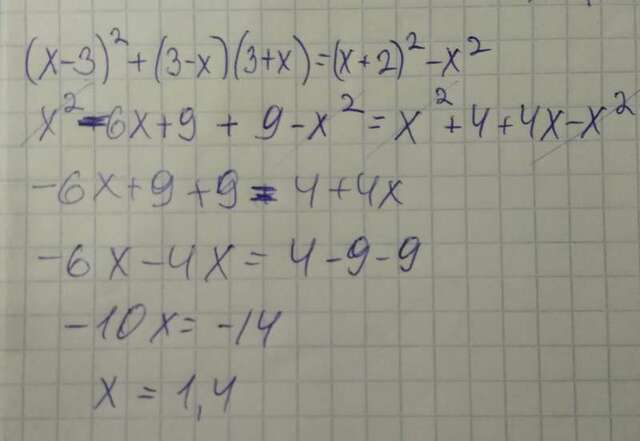 (x-3)²+(3-x)(3+x)=(x+2)²-x²
x²-6x+9+9-x²=x²+4+4x-x²
-6x+9+9=4+4x
-6x-4x=4-9-9
-10x=-14
x=1,4